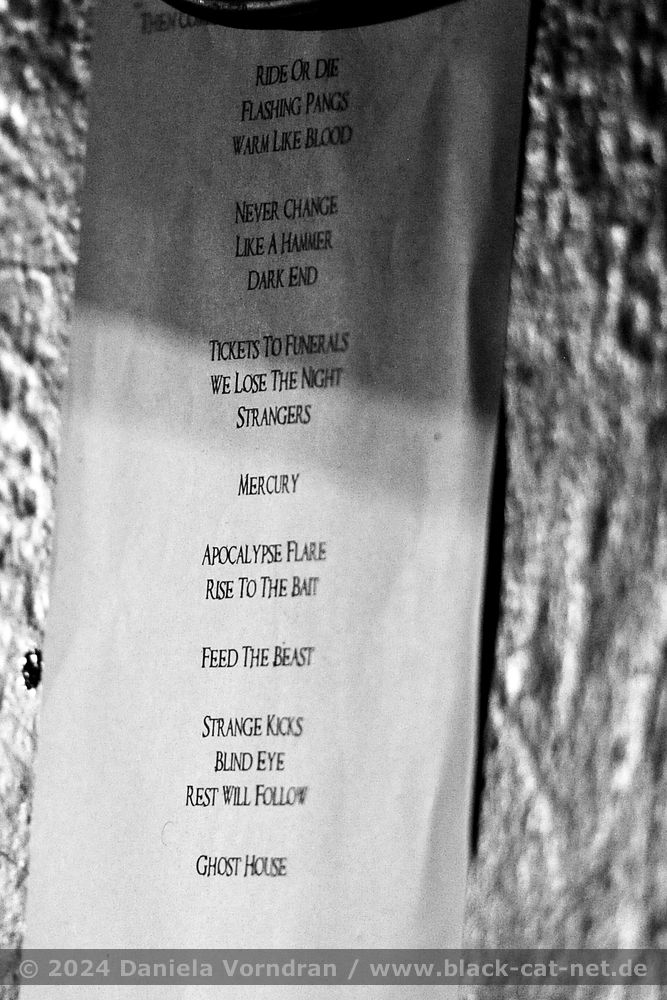 THEN
RIDE OR DIE
FLASHING PANGS
WARM LIKE BLOOD
NEVER CHANGE
LIKE A HAMMER
DARK END
TICKETS TO FUNERALS
WE LOSE THE NIGHT
STRANGERS
MERCURY
APOCALYPSE FLARE
RISE TO THE BAIT
FEED THE BEAST
STRANGE KICKS
BLIND EYE
REST WILL FOLLOW
GHOST HOUSE
© 2024 Daniela Vorndran / www.black-cat-net.de